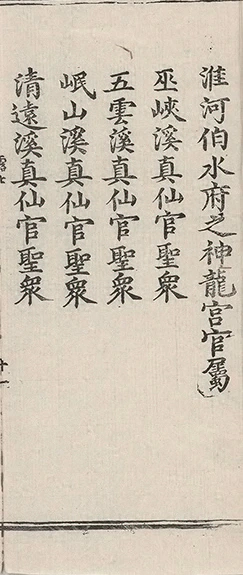 淮河伯水府之神龍宫官屬
巫峽溪真仙官聖衆
五雲溪真仙官聖衆
岷山溪真仙官聖衆
清遠溪真仙官聖衆